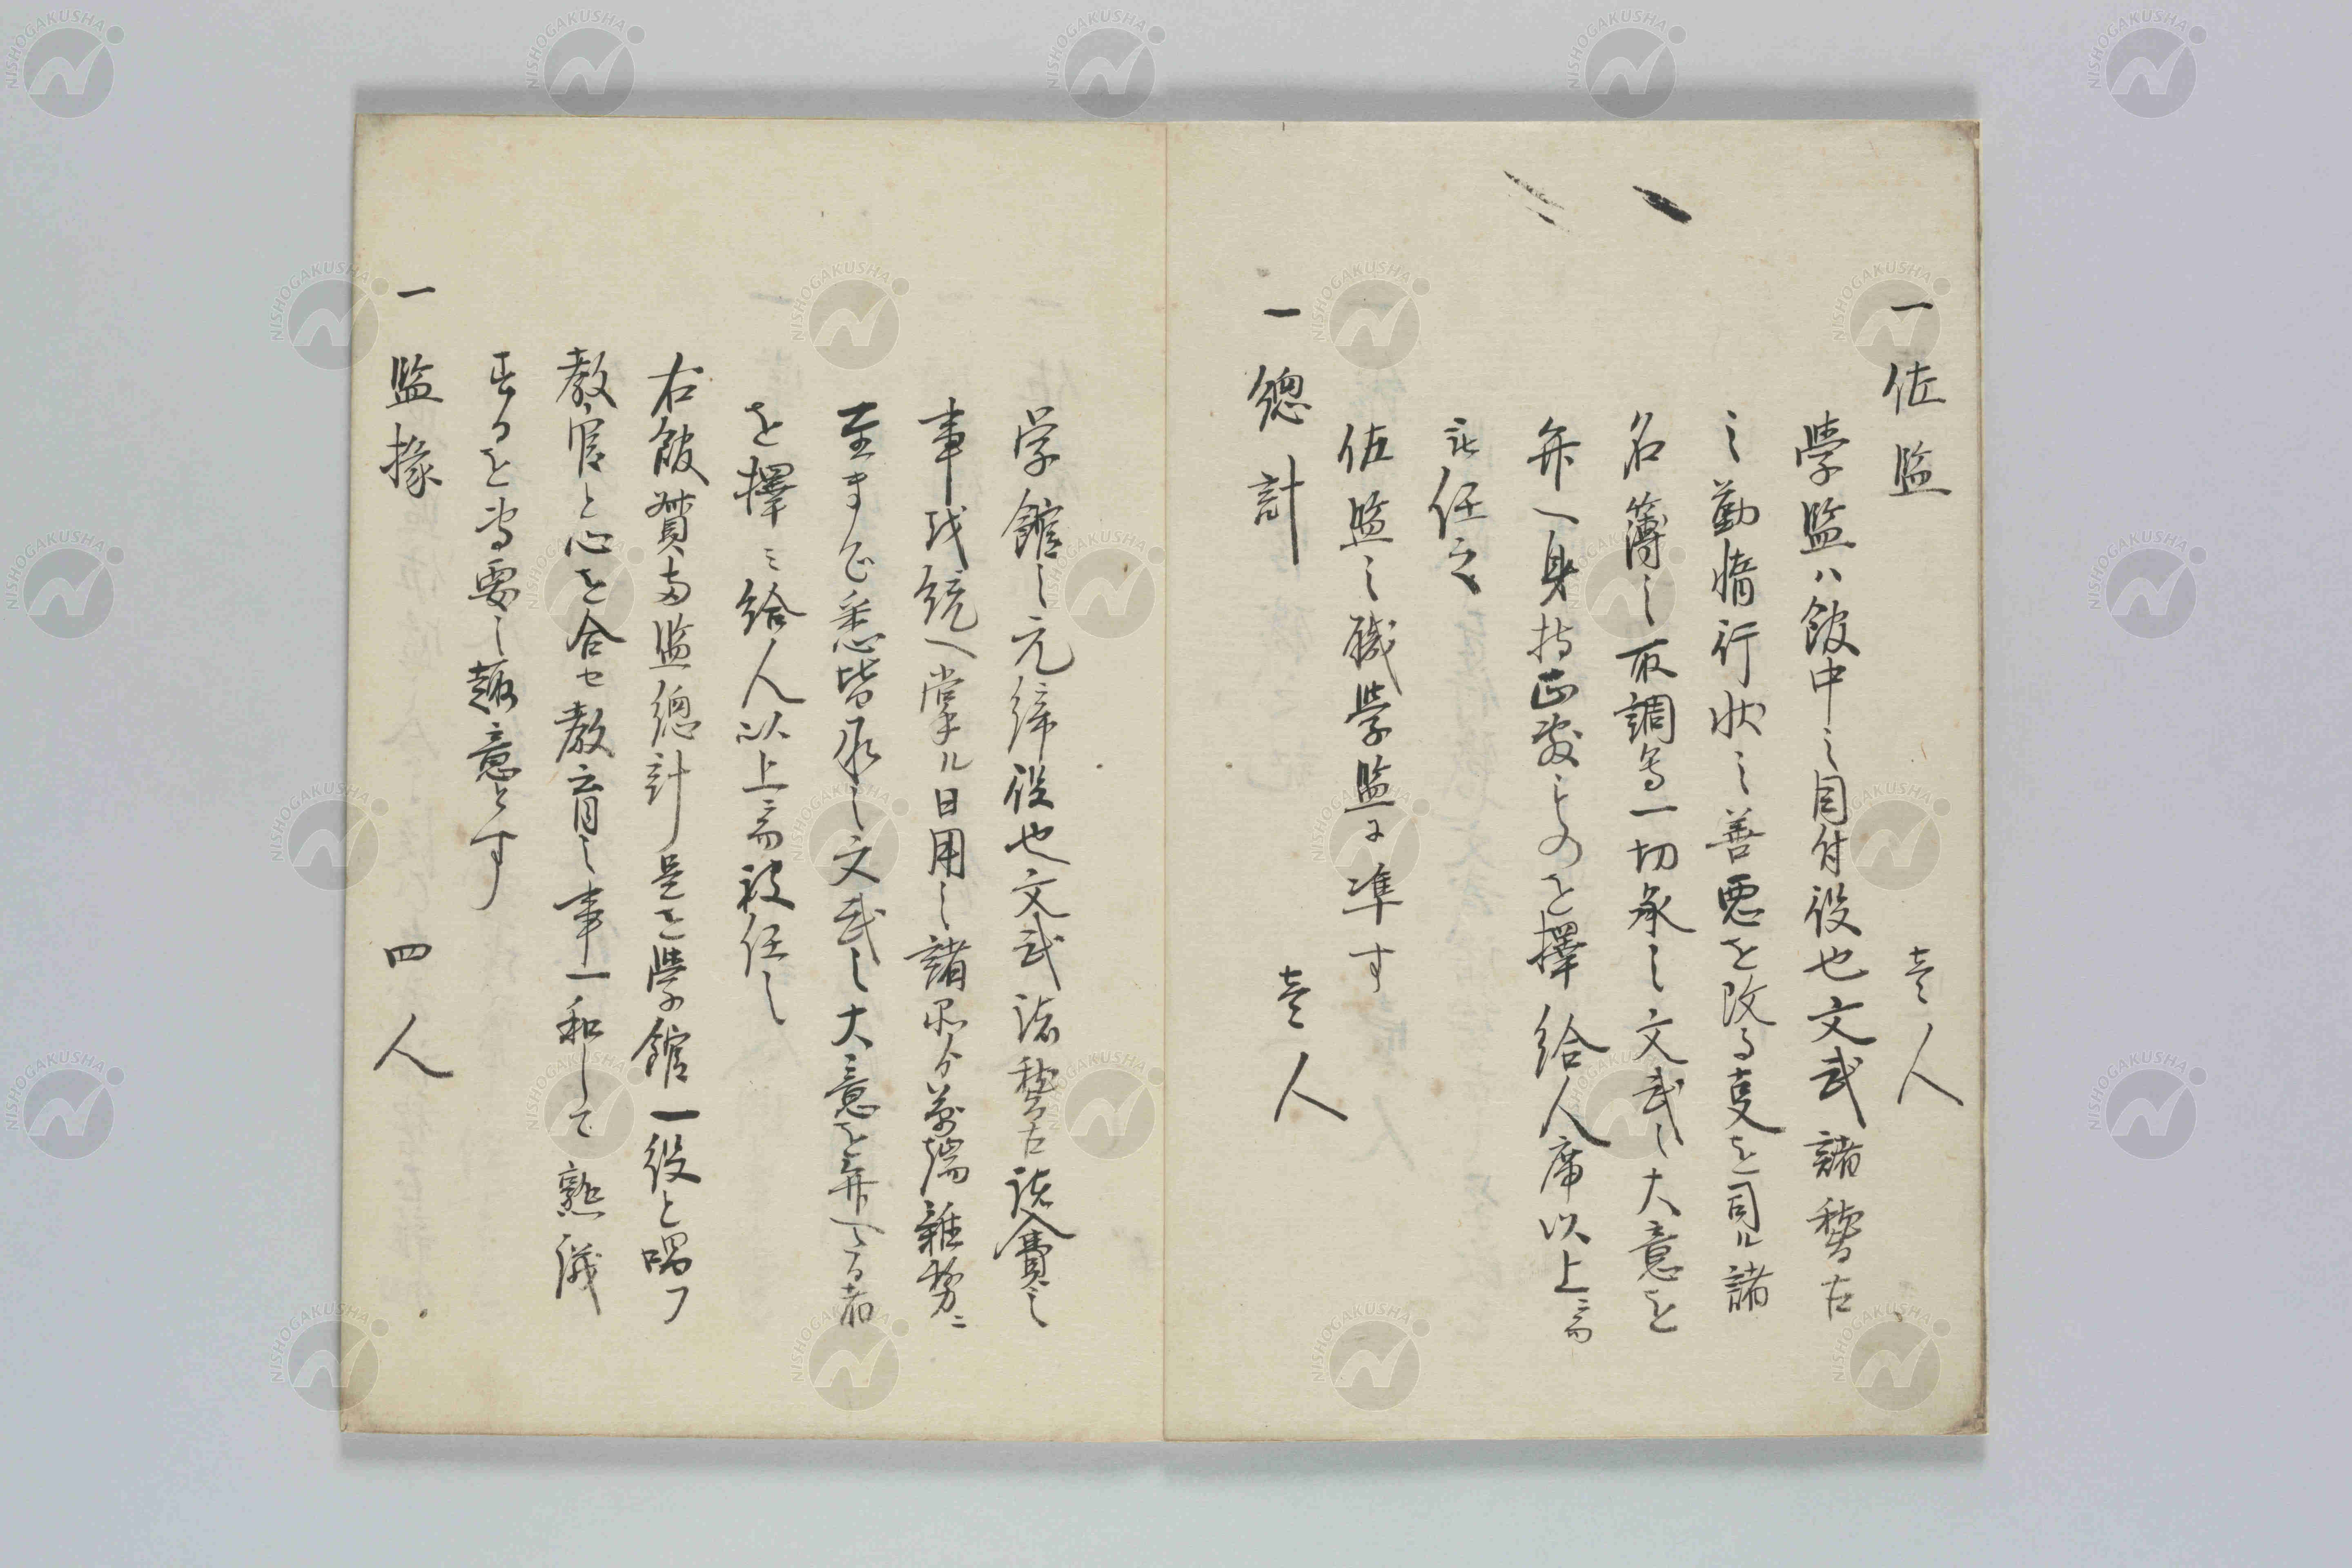 一佐監 壱人
學監ハ館中之目付役也文武諸稽古
之勤惰行状之善悪を改る事を司ル諸
名簿之取調等一切承之文武之大意を
弁へ身持正敷ものを擇給人席以上ニ而
任之
佐監之職學監ニ準す
一總計 壱人
学館之元締役也文武諸稽古諸入費之
事我統へ掌ル日用之諸品分万端雑務ニ
至まて悉皆承之文武之大意を弁へたる者
を擇ミ給人以上ニ而被任之
右館賛両監總計是を學館一役と唱フ
教官と心を合セ教育之事一和して熟議
するを専要之趣意とす
一監掾 四人
NISHOGAKUSHA